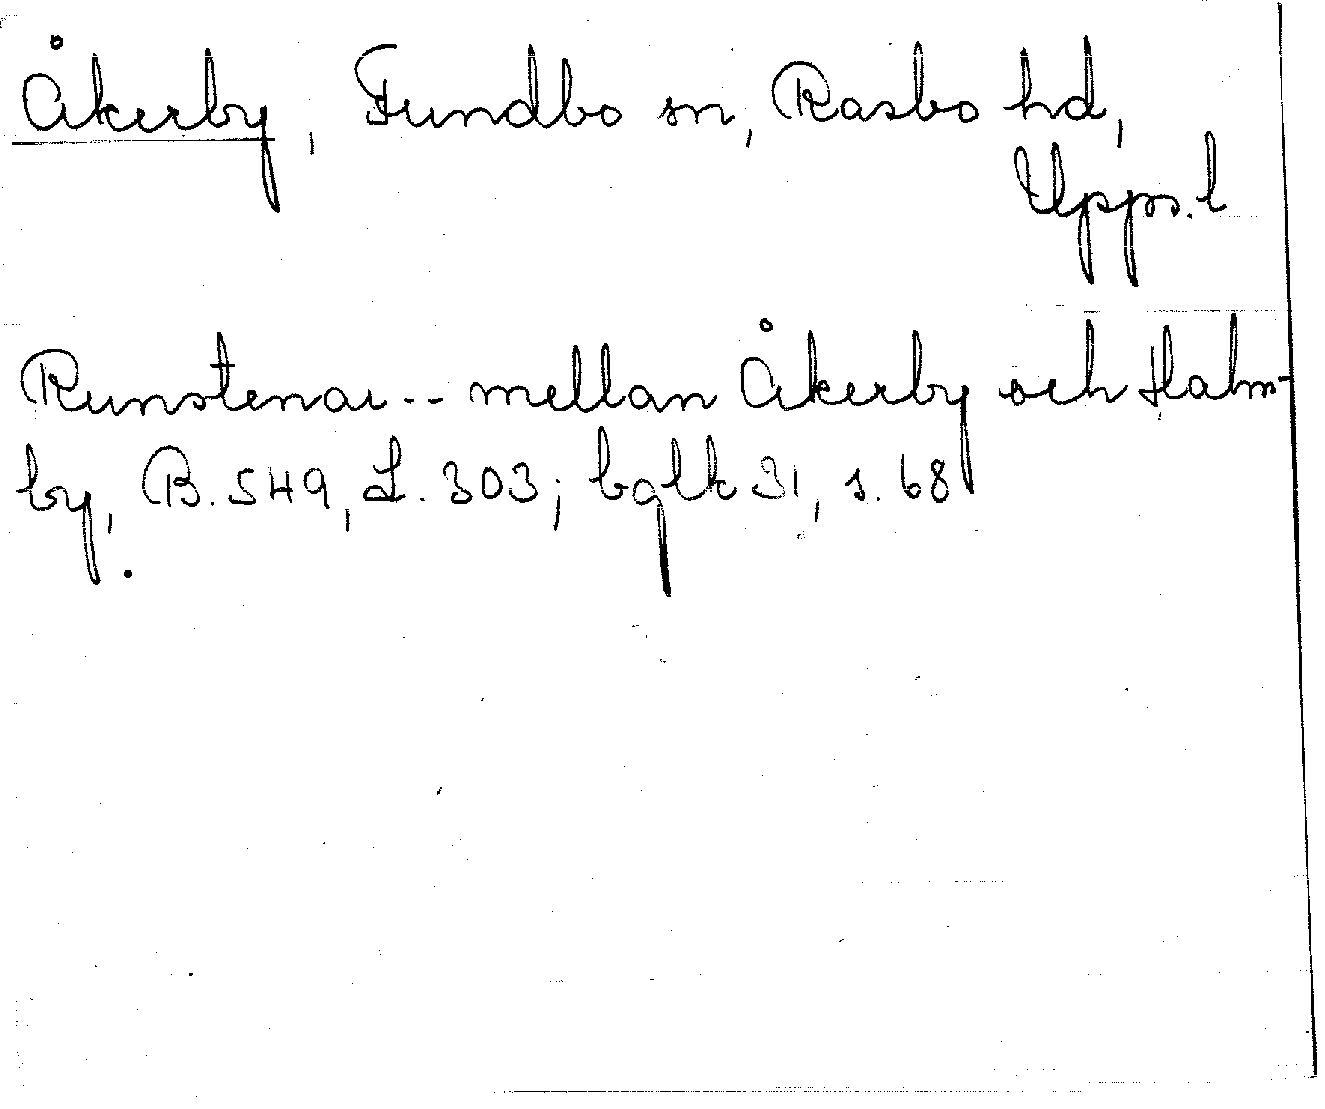 Åkerby, Fundbo sn, Rasbo hd,
Upps. l
Runstenar -- mellan Åkerby och Halm-
by, B. 549, L. 303; bglk 31, s. 68